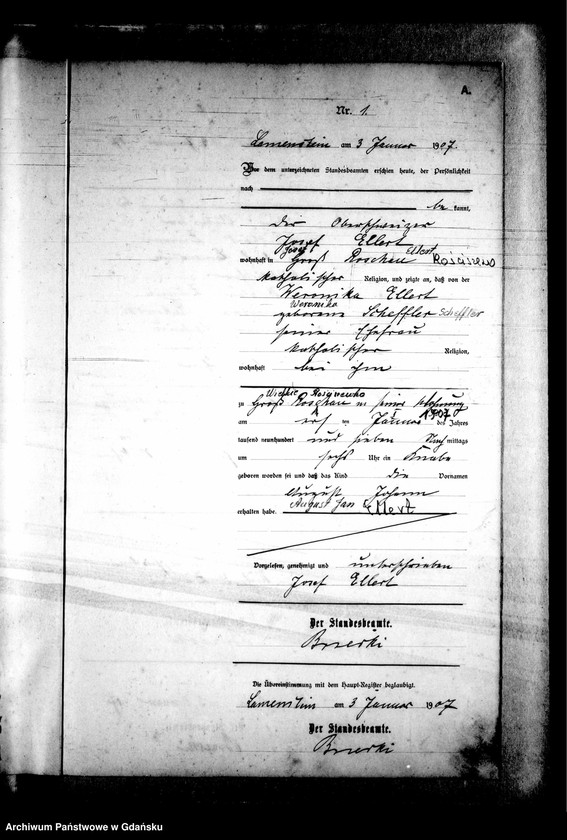 A.
Nr. 1.
Lamenstein am 3 Januar 1907.
Vor dem unterzeichneten Standesbeamten erschien heute, der Persönlichkeit
nach
be kannt,
der Oberschweizer
Josef Ellert
Josef Ellert
wohnhaft in Groß Roschau Rościszewo
katholischer Religion, und zeigte an, daß von der
Weronika Ellert
Weronika
geborene Scheffler Scheffler
seiner Ehefrau
katholischer Religion,
wohnhaft bei ihm
zu Groß Roschau in seiner Wohnung
am ersten Januar 1907 des Jahres
tausend neunhundert und sieben Nachmittags
um sechs Uhr ein Knabe
geboren worden sei und daß das Kind die Vornamen
August Johann
August Jan Ellert
erhalten habe.
Vorgelesen, genehmigt und unterschrieben
Josef Ellert
Der Standesbeamte.
Die Übereinstimmung mit dem Haupt-Register beglaubigt.
Lamenstein am 3 Januar 1907
Der Standesbeamte.
Archiwum Państwowe w Gdańsku